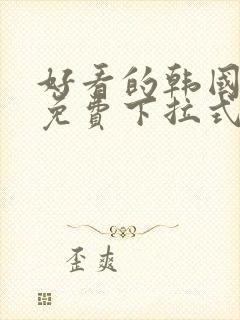 好看的韩国
免费下拉式
歪爽